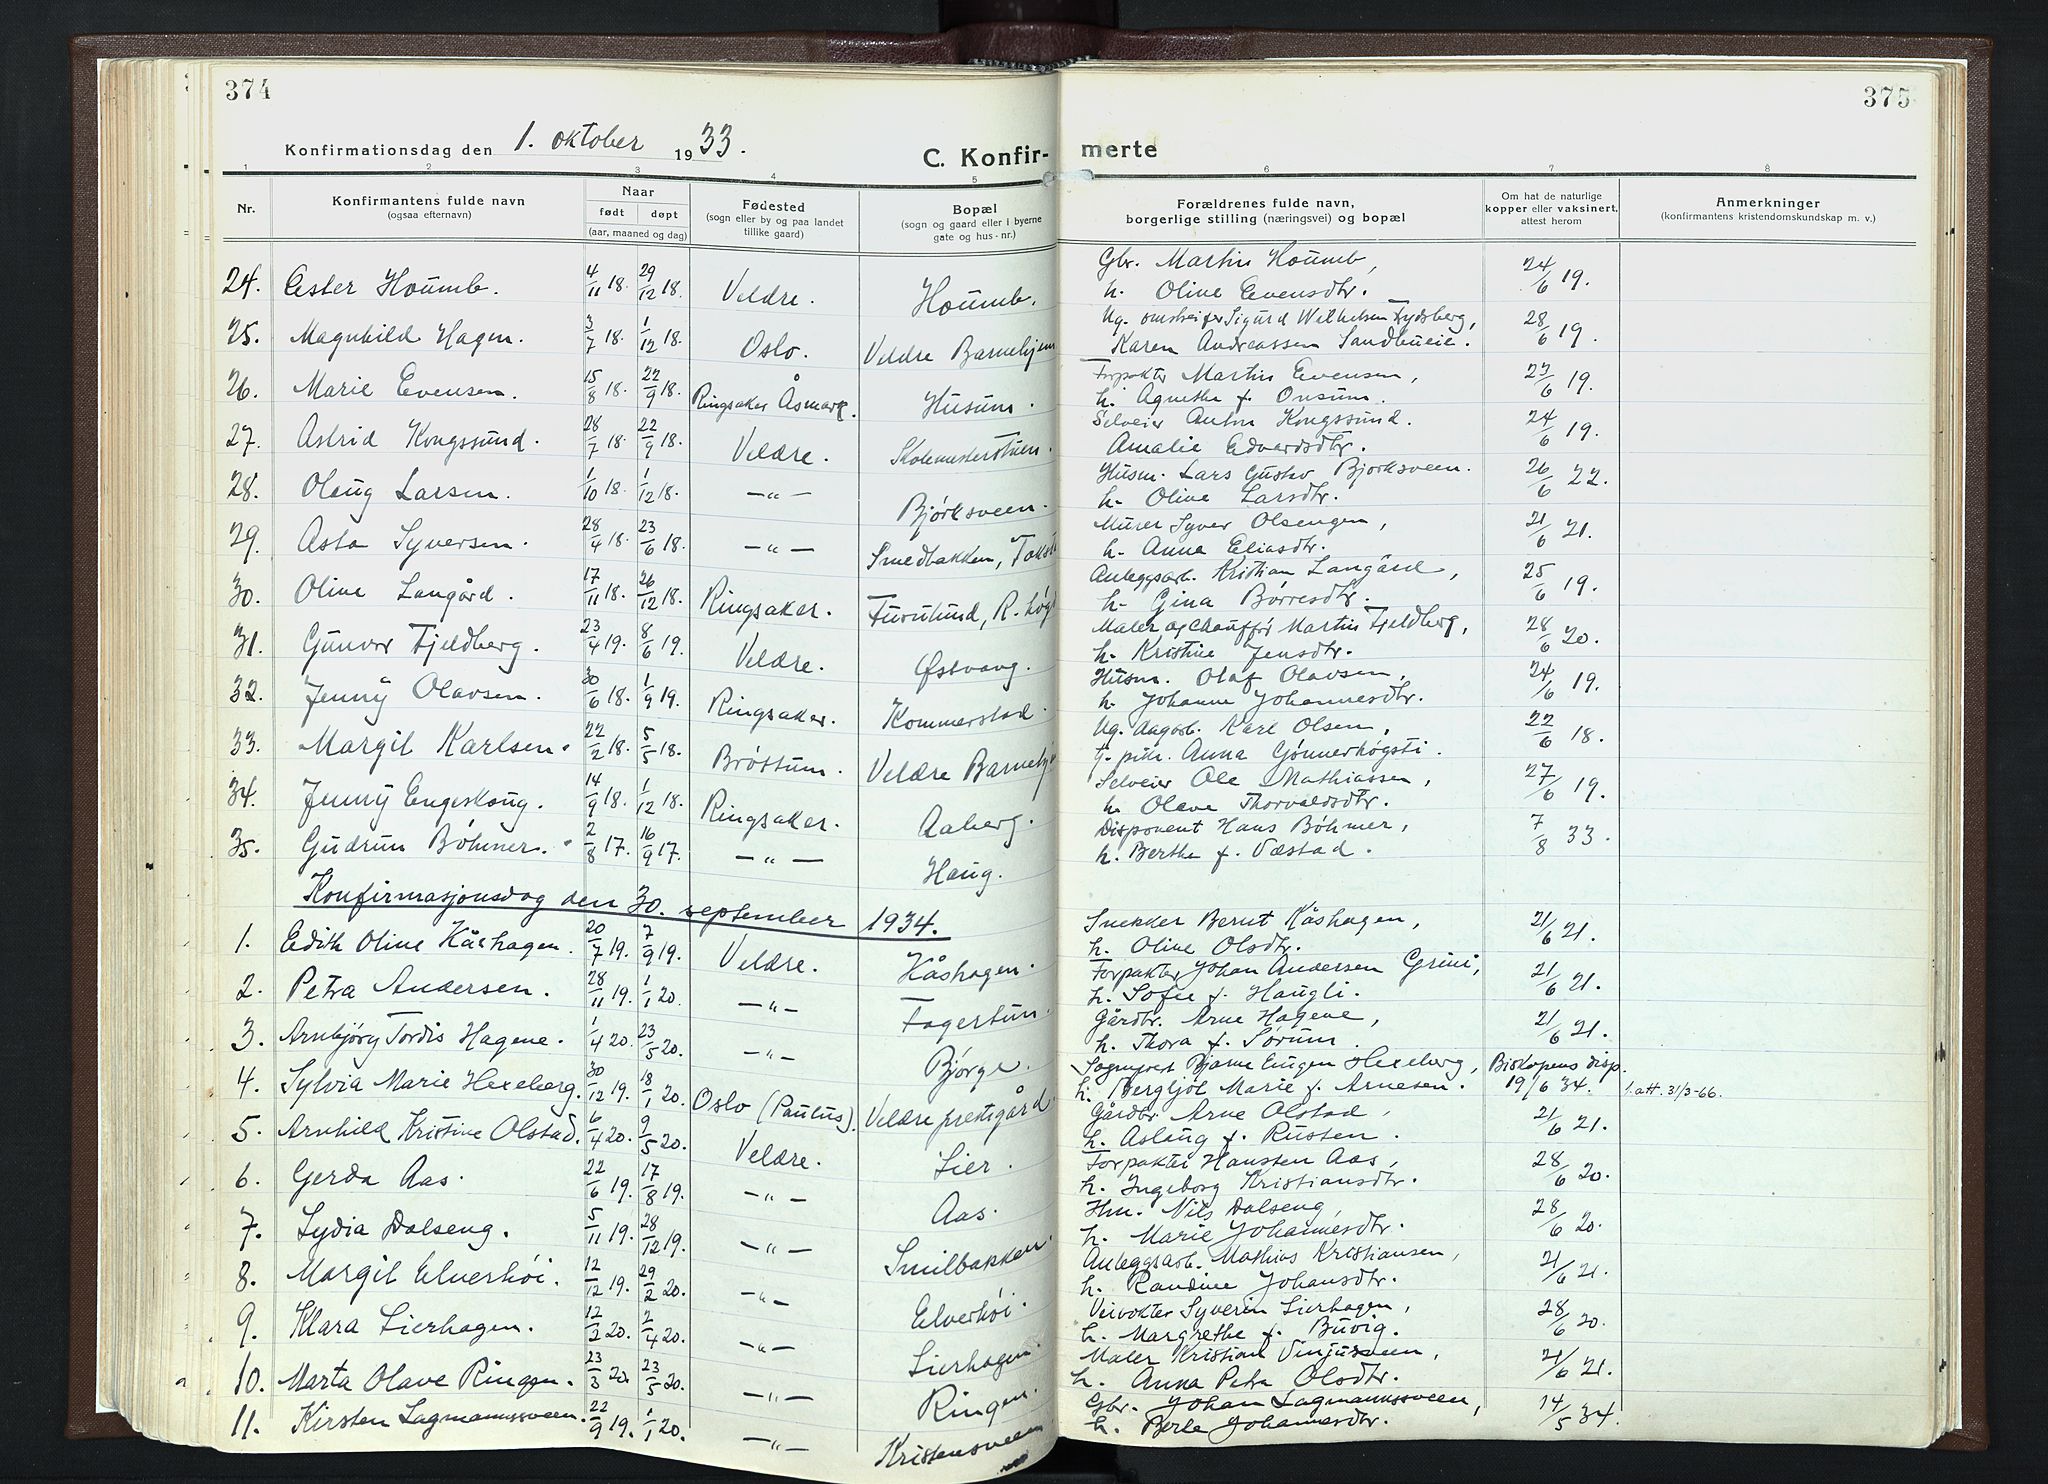 374
Konfirmationsdag den 1. oktober 1933.
C. Konfir-
1 2 3 4 5
Nr.
Konfirmantens fulde navn
(ogsaa efternavn)
Naar
født døpt
(aar, maaned og dag)
Fødested
(sogn eller by og paa landet
tillike gaard)
Bopæl
(sogn og gaard eller i byerne
gate og hus-nr.)
24. Ester Houmb. 4/11 18. 29/12 18. Veldre. Houmb.
25. Magnhild Hagen. 3/7 18. 1/12 18. Oslo. Veldre Barnehjem
26. Marie Evensen. 15/8 18. 22/9 18. Ringsaker Åsmark. Husum.
27. Astrid Kongssund. 28/7 18. 22/9 18. Veldre. Skolemesterstuen.
28. Olaug Larsen. 1/10 18. 1/12 18. —„— Bjørksveen.
29. Asta Syversen. 28/4 18. 23/6 18. —„— Smedbakken,
30. Oline Langård. 17/11 18. 26/12 18. Ringsaker. Furulund, R.
31. Gunvor Fjeldberg. 23/4 19. 8/6 19. Veldre. Østvang.
32. Jenny Olavsen. 30/6 18. 1/9 19. Ringsaker. Kommerstad.
33. Margit Karlsen. 22/2 18. 5/5 18. Brøttum. Veldre
34. Jenny Engeskaug. 14/9 18. 1/12 18. Ringsaker. Aaberg.
35. Gudrun Bøhmer. 2/8 17. 16/9 17. —„— Haug.
Konfirmasjonsdag den 30. september 1934.
1. Edith Oline Kåshagen. 20/7 19. 7/9 19. Veldre. Kåshagen.
2. Petra Andersen. 28/11 19. 1/1 20. —„— Fagertun.
3. Arnbjørg Tordis Hagene. 1/4 20. 23/5 20. —„— Bjørge.
4. Sylvia Marie Hexeberg. 30/12 19. 18/1 20. Oslo (Paulus). Veldre prestgård.
5. Arnhild Kristine Olstad. 6/4 20. 9/5 20. Veldre. Lier.
6. Gerda Aas. 22/6 19. 17/8 19. —„— Aas.
7. Lydia Dalseng. 5/11 19. 28/12 19. —„— Smilbakken.
8. Margit Elverhöi. 12/12 19. 29/2 20. —„— Elverhöi.
9. Klara Lierhagen. 12/2 20. 2/4 20. —„— Lierhagen.
10. Marta Olave Ringen. 23/3 20. 23/5 20. —„— Ringen.
11. Kirsten Lagmannssveen. 22/9 19. 1/1 20. —„— Kristensveen
375
merte
6 7 8
Forældrenes fulde navn,
borgerlige stilling (næringsvei) og bopæl
Om hat de naturlige
kopper eller vaksinert,
attest herom
Anmerkninger
(konfirmantens kristendomskundskap m. v.)
Gbr. Martin Houmb,
h. Olive Evensdtr. 24/6 19.
Ug. omstreifer Sigurd Wilhelmsen Fydsberg,
Karen Andreassen Sandbueie. 28/6 19.
Forpakter Martin Evensen,
h. Agnethe f. Onsum. 23/6 19.
Selveier Anton Kongssund.
Amalie Edvardsdtr. 24/6 19.
Husm. Lars Gustav Bjørksveen.
h. Oline Larsdtr. 26/6 22.
Murer Syver Olsengen,
h. Anna Eliasdtr. 21/6 21.
Anleggsarb. Kristian Langård,
h. Gina Børresdtr. 25/6 19.
Maler og chauffør Martin Fjeldberg,
h. Kristine Jensdtr. 28/6 20.
Husm. Olaf Olavsen,
h. Johanne Johannesdtr. 24/6 19.
Ug. dagarb. Karl Olsen,
tj. pike. Anna Gønnerhøgsti. 22/6 18.
Selveier Ole Mathiassen,
h. Olave Thorvaldsdtr. 27/6 19.
Disponent Hans Bøhmer,
h. Berthe f. Væstad. 7/8 33.
Snekker Bernt Kåshagen,
h. Olive Olsdtr. 21/6 21.
Forpakter Johan Andersen Grini,
h. Sofie f. Haugli. 21/6 21.
Gårdbr. Arne Hagene,
h. Thora f. Sørum. 21/6 21.
Sogneprest Bjarne Eugen Hexeberg,
h. Bergljot Marie f. Arnesen. Biskopens disp. 19/6 34. 1. att. 31/3-66.
Gårdbr. Arne Olstad,
h. Aslaug f. Rusten. 21/6 21.
Forpakter Hansten Aas,
h. Ingeborg Kristiansdtr. 28/6 20.
Hm. Nils Dalseng,
h. Marie Johannesdtr. 28/6 20.
Anleggsarb. Mathias Kristiansen,
h. Randine Johansdtr. 21/6 21.
Veivokter Syverin Lierhagen,
h. Margrethe f. Buvig. 28/6 20.
Maler Kristian Vinjusveen,
h. Anna Petra Olsdtr. 21/6 21.
Gbr. Johan Lagmannssveen,
h. Berte Johannesdtr. 14/5 34.